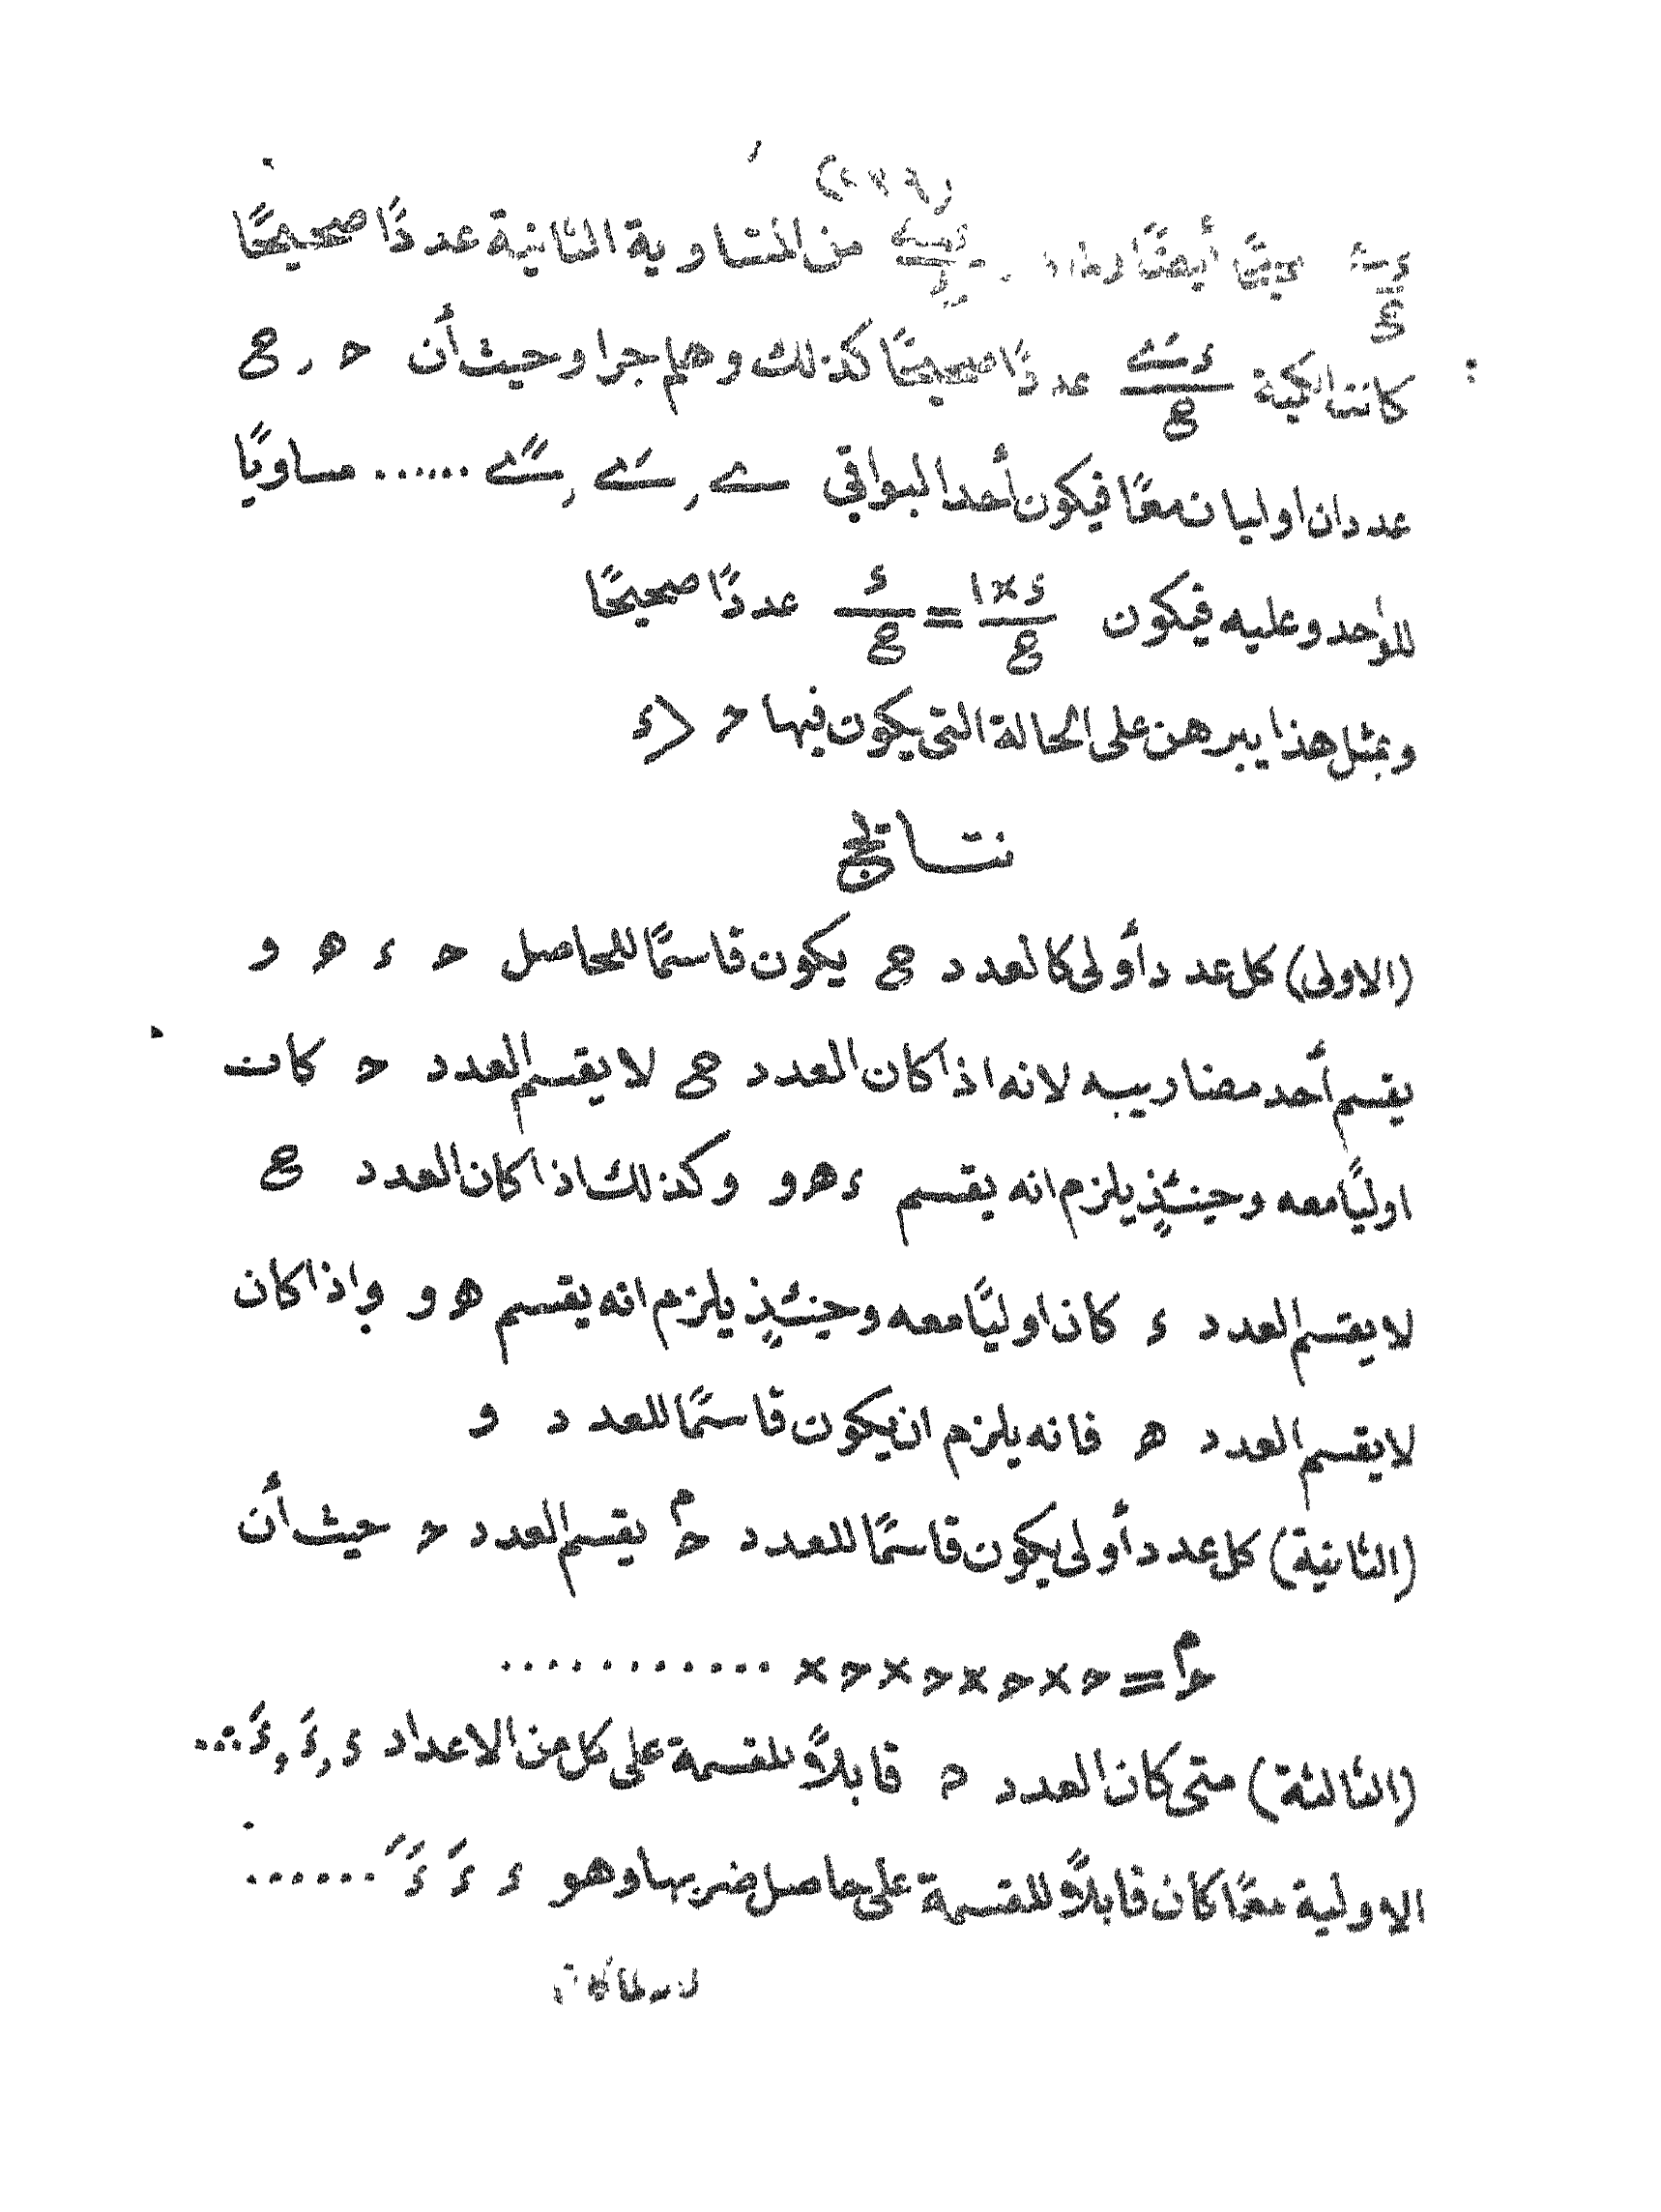 (٢٣٦)
صحيحًا أيضًا من المتساوية الثانية عددًا صحيحًا
كانت الكمية ء سَے / ع عددًا صحيحًا كذلك وهلم جرا وحيث أن ح , ع
عددان اوليان معًا فيكون أحد البواقي سے , سَے , سًے ...... مساويًا
للوٰحد وعليه فيكون ء×١ / ع = ء / ع عددًا صحيحًا
وبمثل هذا يبرهن على الحالة التى يكون فيها ح > ء
نتــائج
(الاولى) كل عدد أولى كالعدد ع يكون قاسمًا للحاصل ح ء ه و
يقسم أحد مضاريبه لانه اذا كان العدد ع لا يقسم العدد ح كان
اوليًا معه وحينئذٍ يلزم انه يقسم ء ه و وكذلك اذا كان العدد ع
لا يقسم العدد ء كان اوليًا معه وحينئذٍ يلزم انه يقسم ه و وإذا كان
لا يقسم العدد ه فانه يلزم ان يكون قاسمًا للعدد و
(الثانية) كل عدد أولى يكون قاسمًا للعدد حم يقسم العدد ح حيث أن
حم = ح×ح×ح×ح× ...........
(الثالثة) متى كان العدد م قابلاً للقسمة على كل من الاعداد ء , ءَ , ءً ...
الاولية معًا كان قابلاً للقسمة على حاصل ضربها وهو ء ءَ ءً ......